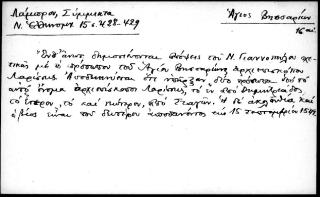 Λάμπρου, Σύμμεικτα
Ν. Ἑλληνομν 15 σ. 428-429
Ἅγιος Βησσαρίων
16 αἰ.
Ἐνθ' ἀνωτ δημοσιεύονται θέσεις τοῦ Ν. Γιαννοπούλου σχε-
τικῶς μὲ τὸ πρόσωπον τοῦ Ἁγίου Βησσαρίωνος ἀρχιεπισκόπου
Λαρίσης. Ἀποδεικνύεται ὅτι ὑπῆρξαν δύο πρόσωπα ὑπὸ τὸ
αὐτὸ ὄνομα ἀρχιεπίσκοποι Λαρίσης, τὸ ἓν ἀπὸ Δημητριάδος,
τὸ ἕτερον, τὸ καὶ νεώτερον, ἀπὸ Σταγῶν. Ἡ δὲ ἀκολουθία καὶ
ὁ βίος εἶναι τοῦ δευτέρου ἀποθανόντος εἰς 15 Σεπτεμβρίου 154